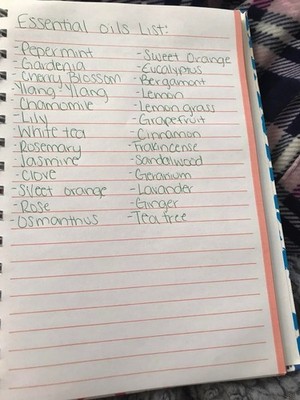 Essential oils List:
-Pepermint
-Gardenia
-Cherry Blossom
-Ylang Ylang
-Chamomile
-Lily
-White tea
-Rosemary
-Jasmine
-Clove
-Sweet orange
-Rose
-Osmanthus
-Sweet Orange
-Eucalyptus
-Bergamont
-Lemon
-Lemon grass
-Grapefruit
-Cinnamon
-Frakincense
-Sandalwood
-Geranium
-Lavander
-Ginger
-Tea tree